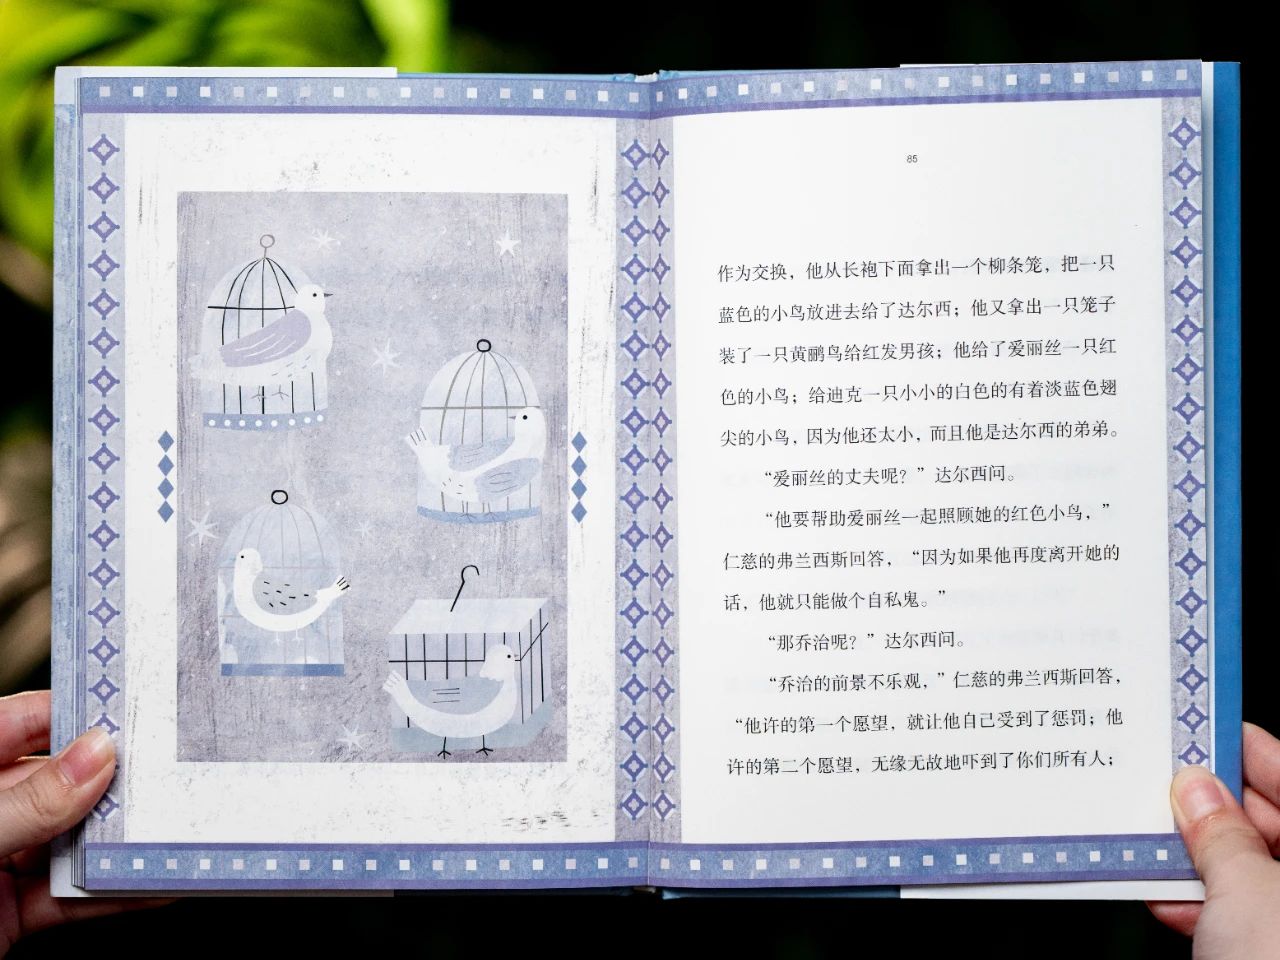 85
作为交换，他从长袍下面拿出一个柳条笼，把一只
蓝色的小鸟放进去给了达尔西；他又拿出一只笼子
装了一只黄鹂鸟给红发男孩；他给了爱丽丝一只红
色的小鸟；给迪克一只小小的白色的有着淡蓝色翅
尖的小鸟，因为他还太小，而且他是达尔西的弟弟。
“爱丽丝的丈夫呢？”达尔西问。
“他要帮助爱丽丝一起照顾她的红色小鸟，”
仁慈的弗兰西斯回答，“因为如果他再度离开她的
话，他就只能做个自私鬼。”
“那乔治呢？”达尔西问。
“乔治的前景不乐观，”仁慈的弗兰西斯回答，
“他许的第一个愿望，就让他自己受到了惩罚；他
许的第二个愿望，无缘无故地吓到了你们所有人；